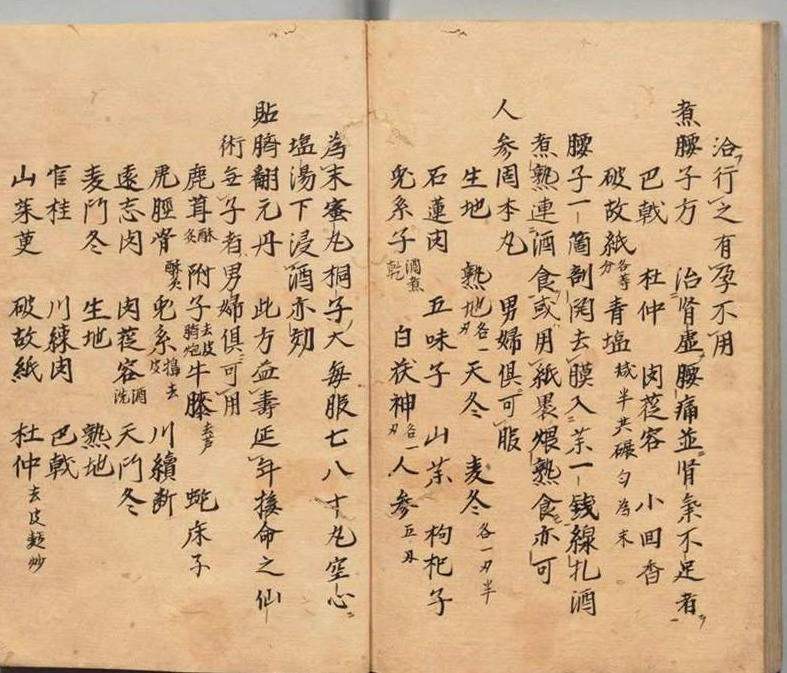 洽行之有孕不用
煮腰子方 治腎虛腰痛並腎氣不足者
巴戟 杜仲 肉蓯容 小囬香
破故紙各等分 青塩 半共碾勻為末
腰子一箇剖開去膜入茱一錢線扎酒
煮熟連酒食或用紙褁煨熟食亦可
人参固本丸 男婦俱可服
生地 熟地各一刄 天冬 麦冬各一刄半
石蓮肉 五味子 山茱 枸杞子
兎糸子酒煮乾 白茯神各一刄 人参五刄
為末蜜丸桐子大每服七八十丸空心
塩湯下浸酒亦効
貼臍翻元丹 此方益壽延年接命之仙
術無子者男婦俱可用
鹿茸酥炙 附子去皮臍炮 牛膝去芦 蛇床子
虎脛骨酥炙 兎糸搗去皮 川續断
遠志肉 肉蓯容酒洗 天門冬
麦門冬 生地 熟地
官桂 川練肉 巴戟
山茱萸 破故紙 杜仲去皮麵炒